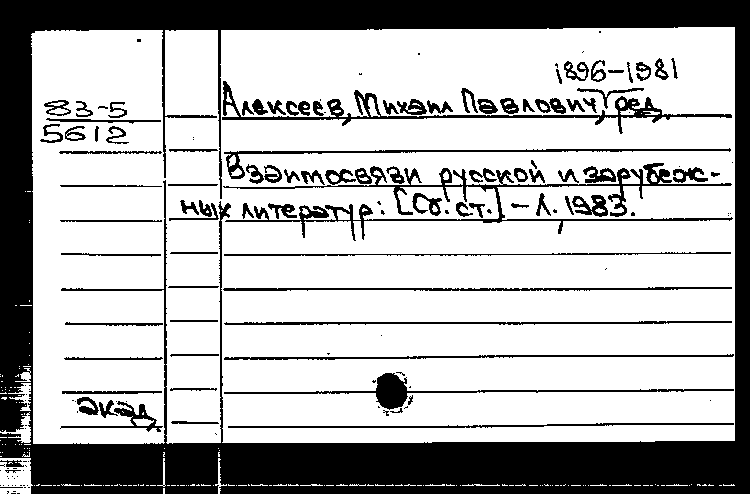 1896-1981
83-5
5612
Алексеев, Михаил Павлович, ред.
Взаимосвязи русской и зарубеж-
ных литератур: [Сб. ст.] – Л., 1983.
акад.